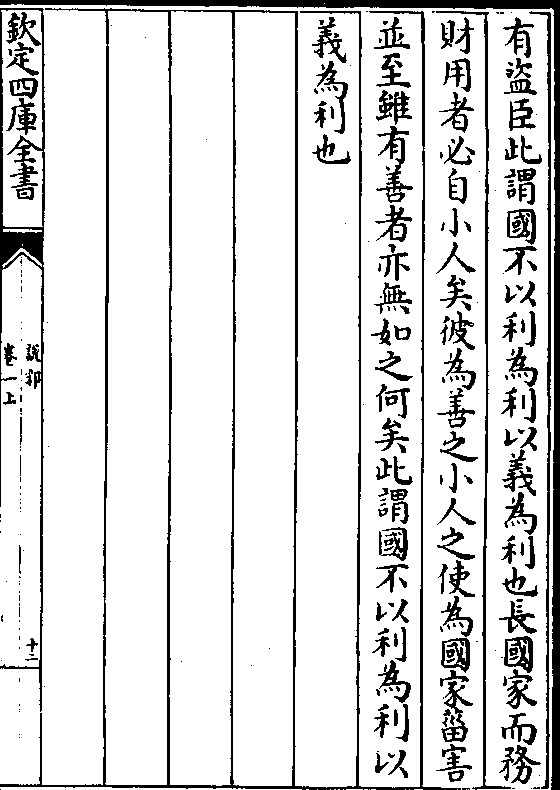 有盜臣此謂國不以利為利以義為利也長國家而務
財用者必自小人矣彼為善之小人之使為國家菑害
並至雖有善者亦無如之何矣此謂國不以利為利以
義為利也
欽定四庫全書
說郛
卷一上
十二